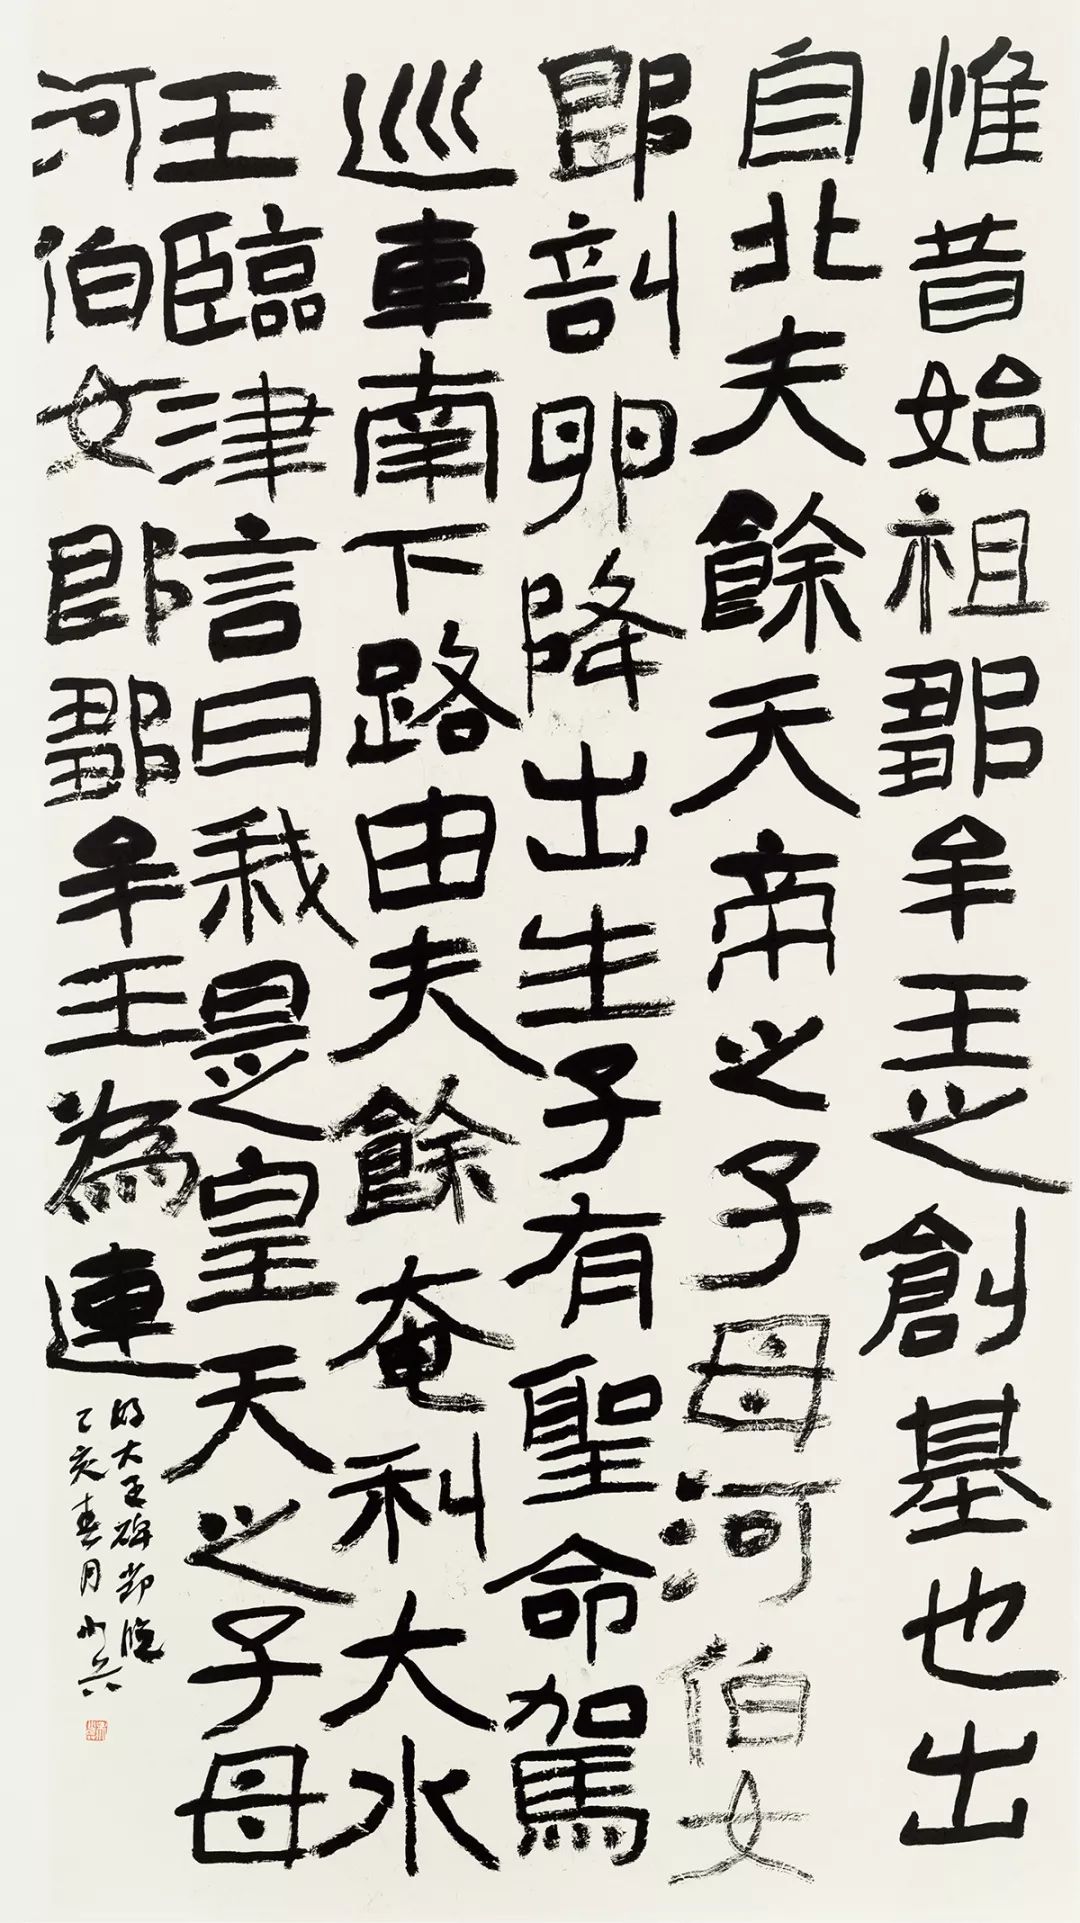 惟昔始祖鄒牟王之創基也出
自北夫餘天帝之子母河伯女
郎剖卵降出生子有聖命駕
巡車南下路由夫餘奄利大水
王臨津言曰我是皇天之子母
河伯女郎鄒牟王為連
好大王碑節臨
己亥春月